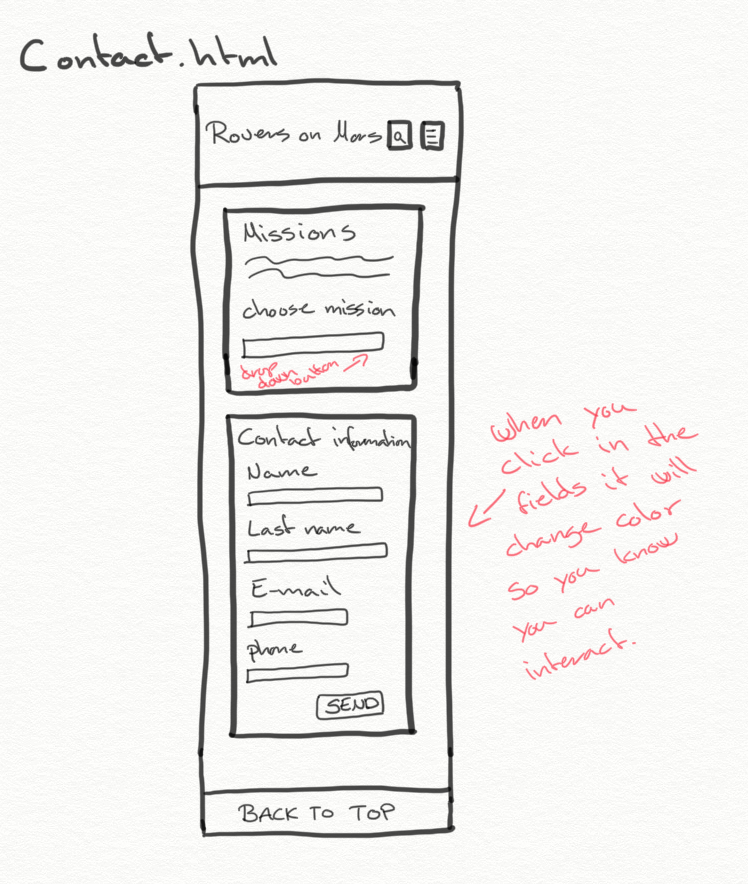 Contact.html
Rovers on Mars
Missions
choose mission
drop
down button
Contact information
Name
Last name
E-mail
phone
SEND
BACK TO TOP
when you
click in the
fields it will
change color
so you know
you can
interact.